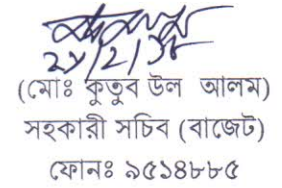 (মোঃ কুতুব উল আলম)
সহকারী সচিব (বাজেট)
ফোনঃ ৯৫১৪৮৮৫